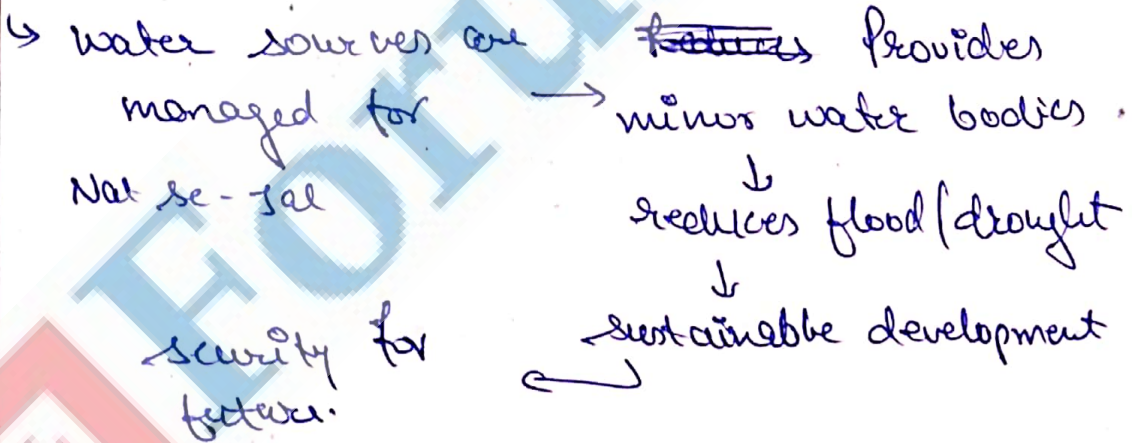 ↳ water sources are
managed for
Nal se-Jal
→ Provides
minor water bodies.
↓
reduces flood/drought
↓
sustainabbe development
security for
future.
Foru